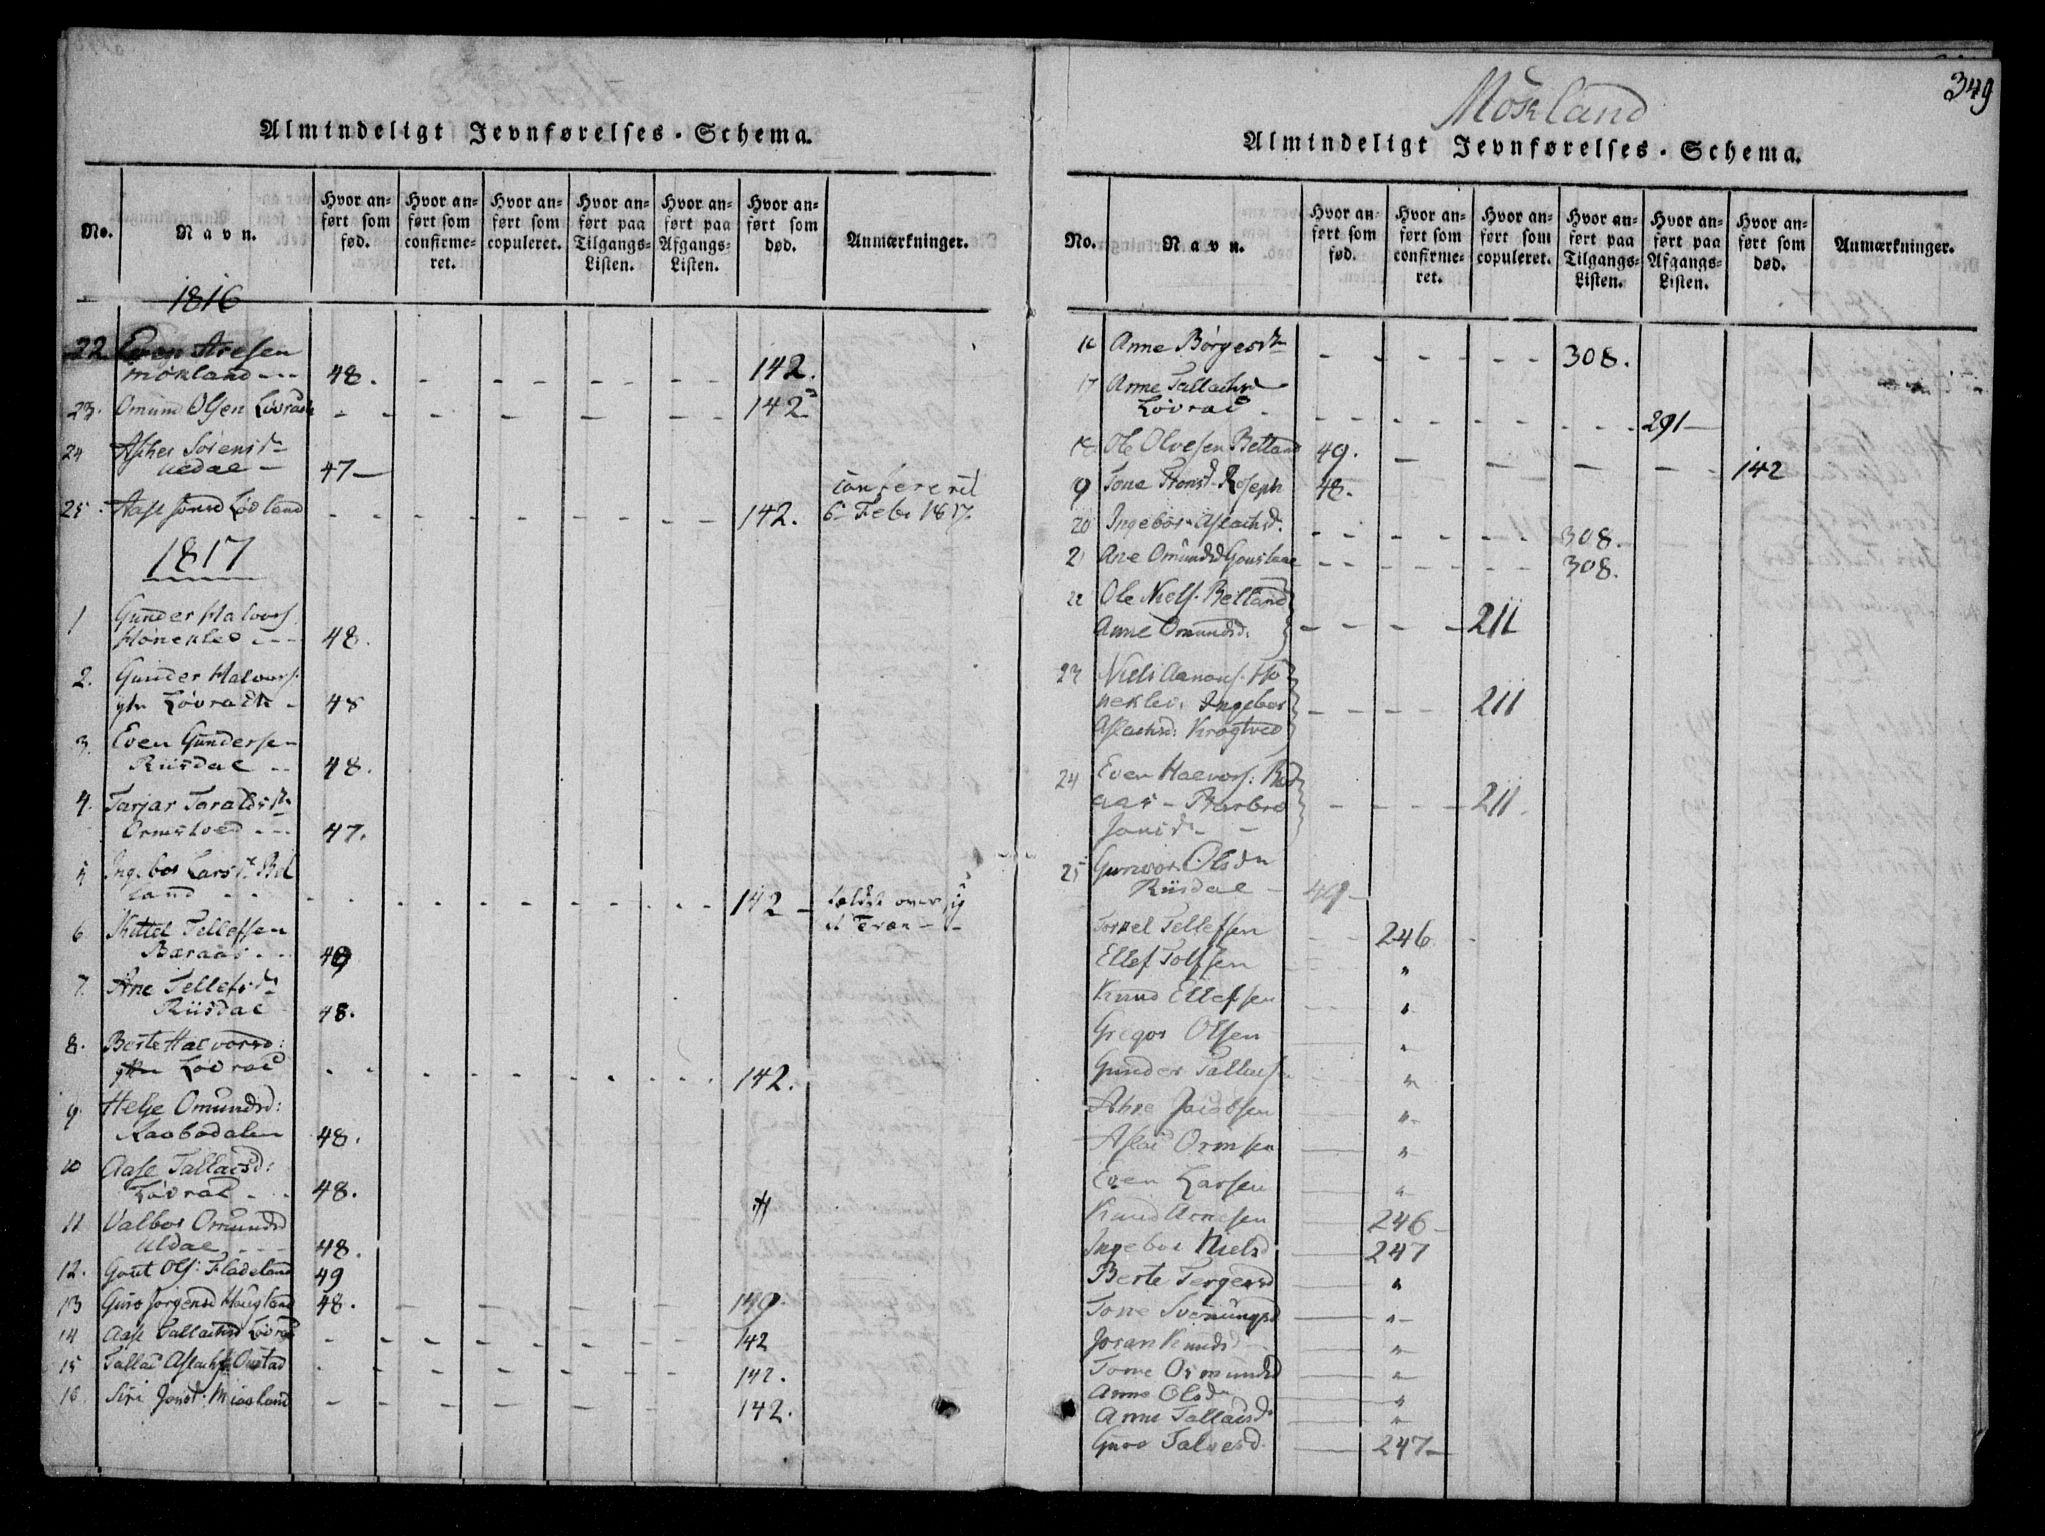 Almindeligt Jevnførelses-Schema.
No.
Navn.
Hvor anført som fød.
Hvor anført som confirmeret.
Hvor anført som copuleret.
Hvor anført paa Tilgangs-Listen.
Hvor anført paa Afgangs-Listen.
Hvor anført som død.
Anmærkninger.
1816
22 Even Aresen
Møkland 48. 142.
23. Omund Olsen Løvrach 142
24 Asher Sørensd
Uedal 47
25. Aase Jonsd Lødland 142. 6 Febr 1817.
1817
1 Gunder Halvors
Hønekled 48.
2. Gunder Halvors.
ytr Løvrach 48
3. Even Gundersen
Riisdal 48.
4. Tarjar Taraldsdr
Ormstved 47.
5 Ingebor Larsdr. Bel
land 142
6 Kittel Tellefsen
Beraas 49
7. Ane Tellefsdr
Riisdal 48.
8. Berte Halvorsd:
ytr Løvrac 142.
9. Helje Omundsd:
Raabodalen 48.
10 Aase Tallacsd:
Løvrac 48.
11 Valbor Omundsd
Uldal 48.
12. Gout Ols: Fladeland 49
13 Guro Jørgensd Haugland 48. 149.
14 Aase Tallachsd Løvrac 142
15 Tallac Aslachs Oustad 142.
16. Siri Jonsd. Miosland 142.
349
Mosland
Almindeligt Jevnførelses-Schema.
No.
Navn.
Hvor anført som fød.
Hvor anført som confirmeret.
Hvor anført som copuleret.
Hvor anført paa Tilgangs-Listen.
Hvor anført paa Afgangs-Listen.
Hvor anført som død.
Anmærkninger.
16 Anne Børgesdr 308.
17 Anne Tallachsd
Løvrac 291
18 Ole Olvesen Betland 49. 142
9 Tone Tronsd. Roseph 48.
20 Ingebor Aslachsd. 308.
21 Ane Omundsd Gouslaae 308.
22 Ole Niels. Belland
Anne Omundsd. 211
23 Niels Aanons. Hø
neklev. Ingebor 211
Aslachsd: Krogtved
24 Even Halvors: Be
aas - Barbro 211
Jonsdr
25 Gunvor Olsdr
Riisdal 49
Torkel Tellefsen 246
Ellef Tolfsen "
Knud Ellefsen "
Gregor Olsen "
Gunder Tallacsen "
Ahne Jacobsen "
Aslac Ormsen "
Even Larsen "
Knud Arnesen 246
Ingebor Nielsd 247
Berte Tergersd "
Tone Svenungsd "
Joran Knudsd "
Tone Osmundsd "
Anne Olsdr "
Anne Tallacsdr "
Guro Talvesd. 247